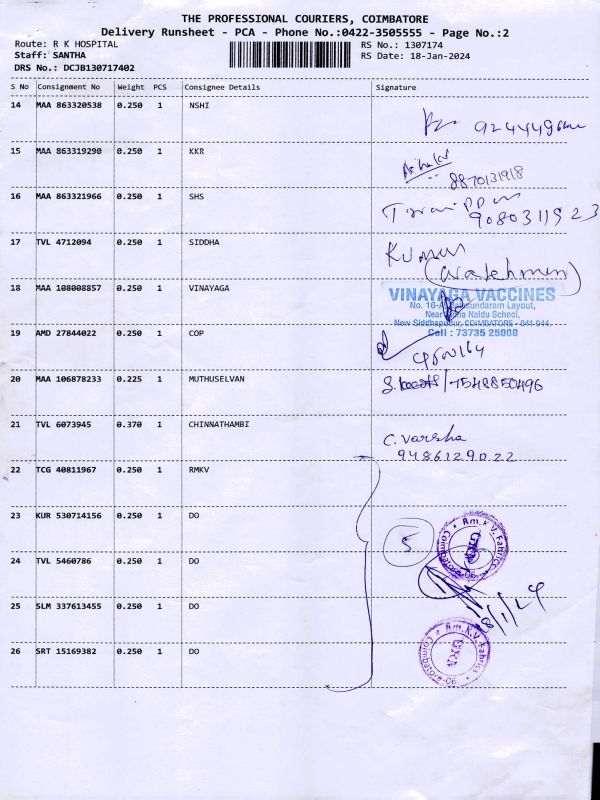 THE PROFESSIONAL COURIERS, COIMBATORE
Delivery Runsheet - PCA - Phone No.:0422-3505555 - Page No.:2
Route: R K HOSPITAL
Staff: SANTHA
DRS No.: DCJB130717402
RS No.: 1307174
RS Date: 18-Jan-2024
S No Consignment No Weight PCS Consignee Details Signature
14 MAA 863320538 0.250 1 NSHI
15 MAA 863319290 0.250 1 KKR
8870131918
16 MAA 863321966 0.250 1 SHS
9080311523
17 TVL 4712094 0.250 1 SIDDHA Kumar
(Watchman)
18 MAA 108008857 0.250 1 VINAYAGA
VINAYAGA VACCINES
Layout,
Near Naidu School,
New Siddhapudur, COIMBATORE - 641 044.
Cell : 73735 25000
19 AMD 27844022 0.250 1 COP
20 MAA 106878233 0.225 1 MUTHUSELVAN
7548850496
21 TVL 6073945 0.370 1 CHINNATHAMBI
C. Varsha
9486129022
22 TCG 40811967 0.250 1 RMKV
23 KUR 530714156 0.250 1 DO
5
Rm.K.V. Fabrics
Coimbatore-06.
24 TVL 5460786 0.250 1 DO
25 SLM 337613455 0.250 1 DO
26 SRT 15169382 0.250 1 DO
Rm.K.V. Fabrics
Coimbatore-06.